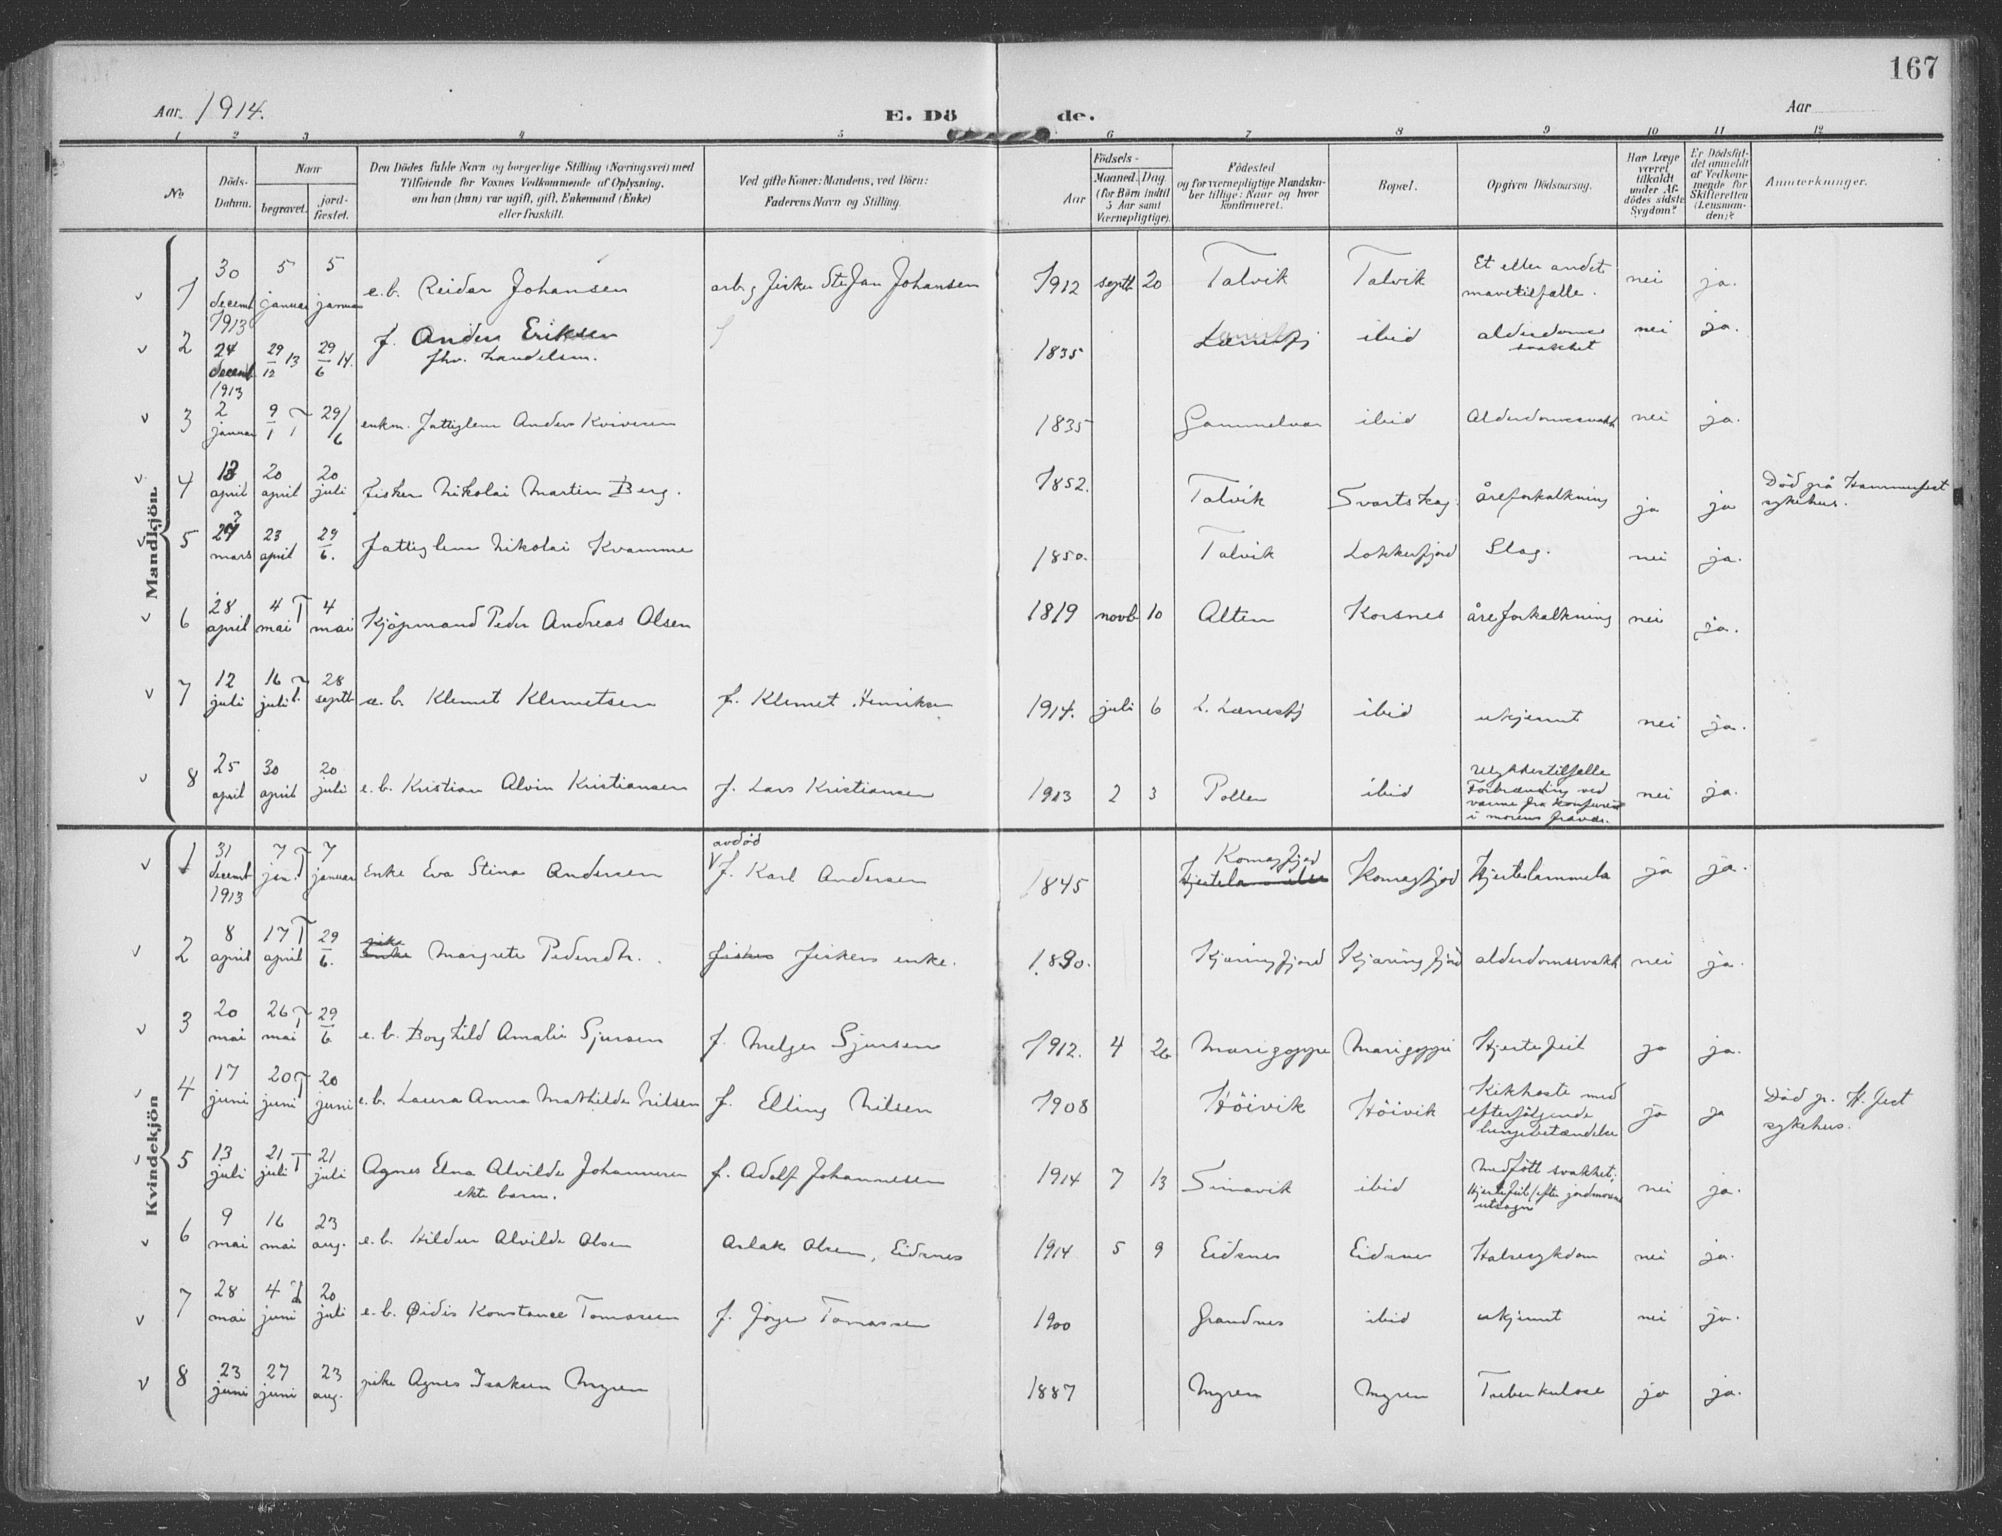 167
Aar 1914.
E. Dö de.
Aar
1 2 3 4 5 6 7 8 9 10 11 12
No
Döds-Datum.
Naar
begravet.
jord-fæstet.
Den Dödes fulde Navn og borgerlige Stilling (Næringsvei) med
Tilföiende for Voxnes Vedkommende af Oplysning,
om han (hun) var ugift, gift, Enkemand (Enke)
eller fraskilt.
Ved gifte Koner: Mandens, ved Börn:
Faderens Navn og Stilling.
Födsels-
Aar
Maaned. Dag
(for Börn indtil
5 Aar samt
Værnepligtige).
Födested
og for værnepligtige Mandskaber tillige: Naar og hvor
konfirmeret.
Bopæl.
Opgiven Dödsaarsag.
Har Læge
været
tilkaldt
under Afdödes sidste
Sygdom?
Er Dödsfaldet anmeldt
af Vedkommende for
Skifteretten
(Lensmanden)?
Anmærkninger.
Mandkjön.
1 30 decemb 1913 5 januar 5 januar e.b. Reidar Johansen arb. g fisker Stefan Johansen 1912 septb 20 Talvik Talvik Et eller andet mavetilfælle. nei ja.
2 24 decemb 1913 29/12 13 29/6 14. f. Anders Eriksen fhv. handelsm. 1835 ibid alderdoms svakhet nei ja.
3 2 januar 9/1 T 29/6 enkm. fattiglem Anders Kvivesen 1835 Gammelvær ibid Alderdomssvakh nei ja.
4 13 april 20 april 20 juli fisker Nikolai Martin Berg. 1852. Talvik Svartskog. åreforkalkning ja ja Död på Hammerfest sykehus.
5 27 mars 23 april 29/6. fattiglem Nikolai Kvamme 1850. Talvik Lokkerfjord Slag. nei ja.
6 28 april 4 mai T 4 mai Kjöpmand Peder Andreas Olsen 1819 novb 10 Alten Korsnes åreforkalkning nei ja.
7 12 juli 16 juli T 28 septb e.b. Klemet Klemetsen f. Klemet Henriksen 1914. juli 6 L. Lærresfj ibid ukjennt nei ja.
8 25 april 30 april 20 juli e.b. Kristian Alvin Kristiansen f. Lars Kristiansen 1913 2 3 Pollen ibid Ulykkestilfælle Forbrænding ved i morens fravær. nei ja.
Kvindekjön
1 31 decemb 1913 7 jan. T 7 januar Enke Eva Stina Andersen avdöd f. Karl Andersen 1845 Komagfjord Komagfjord Hjertelammelse ja ja.
2 8 april 17 april T 29/6. pike Margrete Pedersdtr. fiskers enke. 1830. Kjæringfjord Kjæringfjord alderdomssvakh nei ja.
3 20 mai 26 mai T 29/6 e.b. Borghild Amalie Sjursen f. Melger Sjursen 1912. 4 26 Marigoppe Marigoppi Hjertefeil ja ja.
4 17 juni 20 juni T 20 juni e.b. Laura Anna Mathilde Nilsen f. Elling Nilsen 1908 Höivik Höivik Kikhoste med efterfölgende lungebetændelse ja ja Död p. H.fest sykehus.
5 13 juli 21 juli T 21 juli Agnes Elna Alvilde Johannesen ekte barn. f. Adolf Johannesen 1914 7 13 Simavik ibid Medfött svakhet; Hjertefeil (efter jordmorens utsagn nei ja.
6 9 mai 16 mai 23 aug. e.b. Hildur Alvilde Olsen Aslak Olsen, Eidsnes 1914 5 9 Eidsnes Eidsnes Halssykdom nei ja.
7 28 mai 4 juni 20 juli e.b. Öidis Konstance Tomassen f. Jörgen Tomassen 1900 Grandnes ibid ukjennt nei ja.
8 23 juni 27 juni 23 aug. pike Agnes Isaksen Myren 1887 Myren Myren Tuberkulose ja ja.